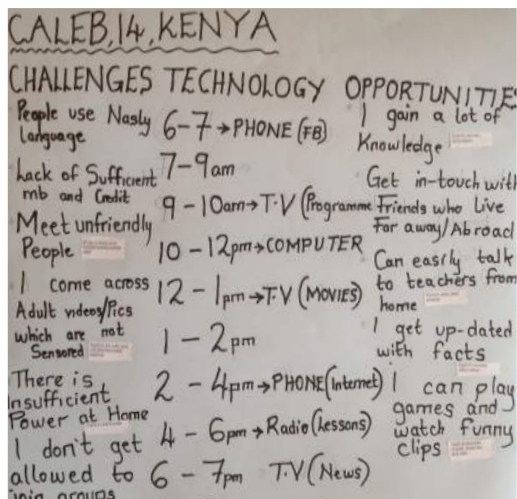 CALEB, 14, KENYA
CHALLENGES TECHNOLOGY OPPORTUNITIES
People use Nasly
Language
Lack of Sufficient
mb and Credit
Meet unfriendly
People
I come across
Adult videos/Pics
which are not
Sensored
There is
Insufficient
Power at Home
I don't get
allowed to
join groups
6-7→PHONE (FB)
7-9am
9-10am→T.V (Programme
10-12pm→COMPUTER
12-1pm→T.V (MOVIES)
1-2pm
2-4pm→PHONE (Internet)
4-6pm→Radio (Lessons)
6-7pm T.V (News)
I gain a lot of
Knowledge
Get in-touch with
Friends who Live
Far away/Abroad
Can easily talk
to teachers from
home
I get up-dated
with facts
I can play
games and
watch funny
clips